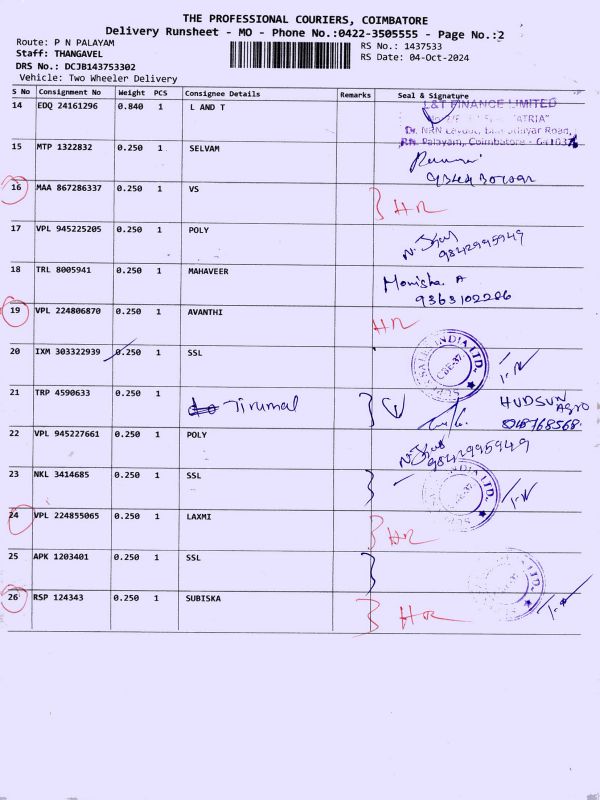 THE PROFESSIONAL COURIERS, COIMBATORE
Delivery Runsheet - MO - Phone No.:0422-3505555 - Page No.:2
Route: P N PALAYAM
Staff: THANGAVEL
DRS No.: DCJB143753302
Vehicle: Two Wheeler Delivery
RS No.: 1437533
RS Date: 04-Oct-2024
S No Consignment No Weight PCS Consignee Details Remarks Seal & Signature
14 EDQ 24161296 0.840 1 L AND T
L&T FINANCE LIMITED
15 MTP 1322832 0.250 1 SELVAM
16 MAA 867286337 0.250 1 VS HR
17 VPL 945225205 0.250 1 POLY 9842995949
18 TRL 8005941 0.250 1 MAHAVEER Monisha. A
9363102206
19 VPL 224806870 0.250 1 AVANTHI HR
20 IXM 303322939 0.250 1 SSL
21 TRP 4590633 0.250 1 Tirumal HUDSUN Agro
22 VPL 945227661 0.250 1 POLY 9842995949
23 NKL 3414685 0.250 1 SSL
24 VPL 224855065 0.250 1 LAXMI HR
25 APK 1203401 0.250 1 SSL
26 RSP 124343 0.250 1 SUBISKA HR